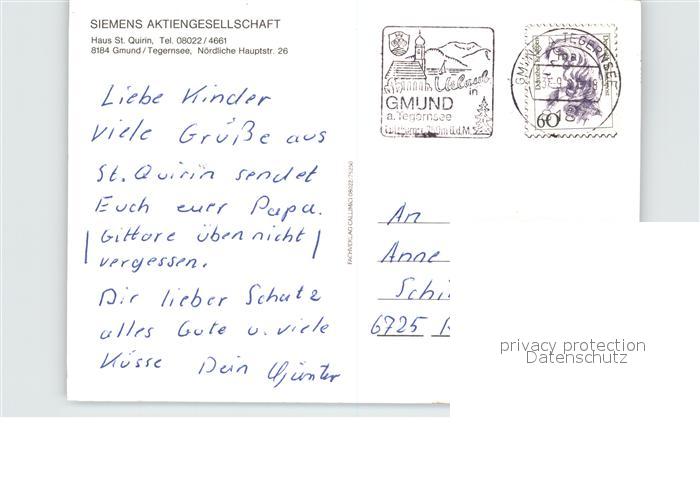 SIEMENS AKTIENGESELLSCHAFT
Haus St. Quirin, Tel. 08022/4661
8184 Gmund/Tegernsee, Nördliche Hauptstr. 26
Liebe Kinder
Viele Grüße aus
St. Quirin sendet
Euch euer Papa.
Gittare üben nicht
vergessen.
Dir lieber Schatz
alles Gute u. viele
Küsse Dein Günter
FACHVERLAG
Urlaub
in
GMUND
a. Tegernsee
TEGERNSEE
60
An
Anne
Schi
6725
privacy protection
Datenschutz